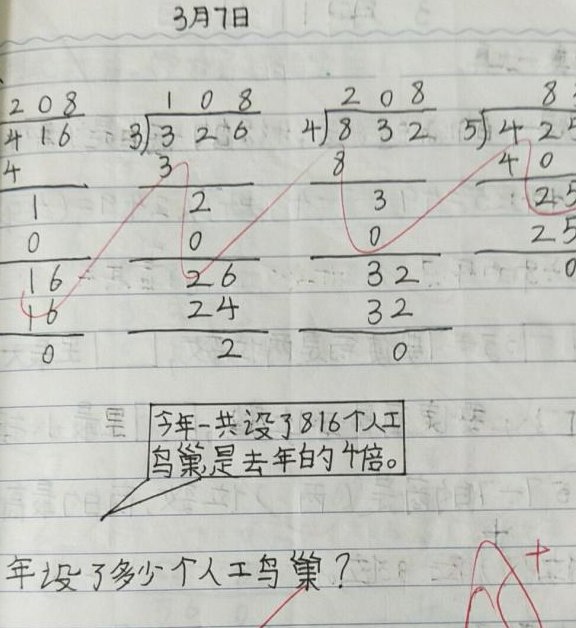 3月7日
208
416
4
1
0
16
16
0
108
3)326
3
2
0
26
24
2
208
4)832
8
3
0
32
32
0
8
5)425
40
25
25
0
今年一共设了816个人工
鸟巢是去年的4倍。
年设了多少个人工鸟巢?